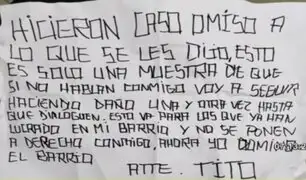 HICIERON CASO OMISO A
LO QUE SE LES DIJO, ESTO
ES SOLO UNA MUESTRA DE QUE
SI NO HABLAN CONMIGO VOY A SEGUIR
HACIENDO DAÑO UNA Y OTRA VEZ HASTA
QUE DIALOGUEN. ESTO VA PARA LOS QUE YA HAN
LUCRADO EN MI BARRIO Y NO SE PONEN
A DERECHO CONTIGO, AHORA YO DOMI
EL BARRIO
ATTE. TITO